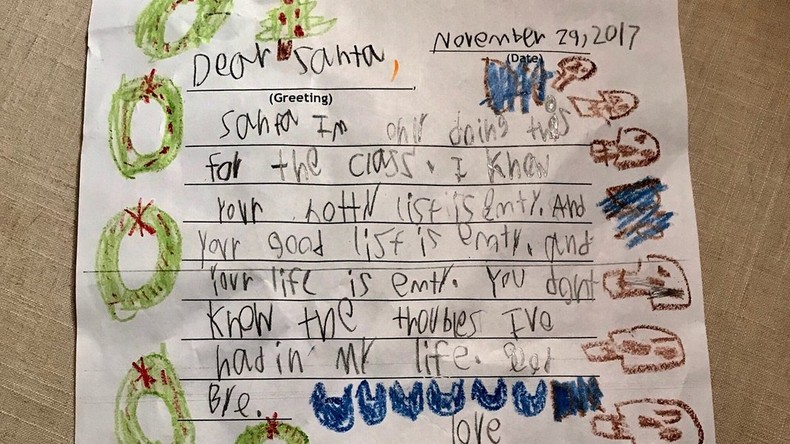 November 29, 2017
(Date)
Dear Santa,
(Greeting)
Santa Im only doing this
for the class. I know
your notty list is emty. And
your good list is emty. and
Your life is emty. You dont
know the thoubles Ive
had in my life. Good
Bye.
love